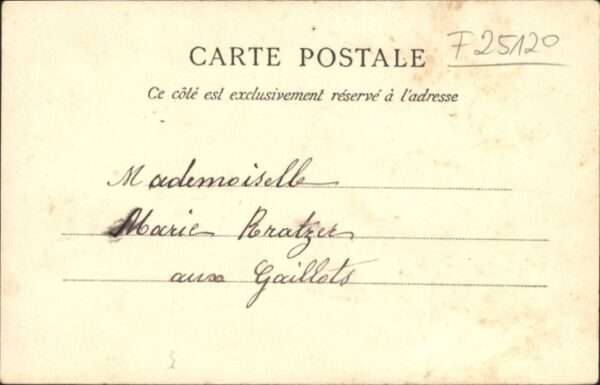 CARTE POSTALE
F 25120
Ce côté est exclusivement réservé à l'adresse
Mademoiselle
Marie Kratzer
aux Gaillots